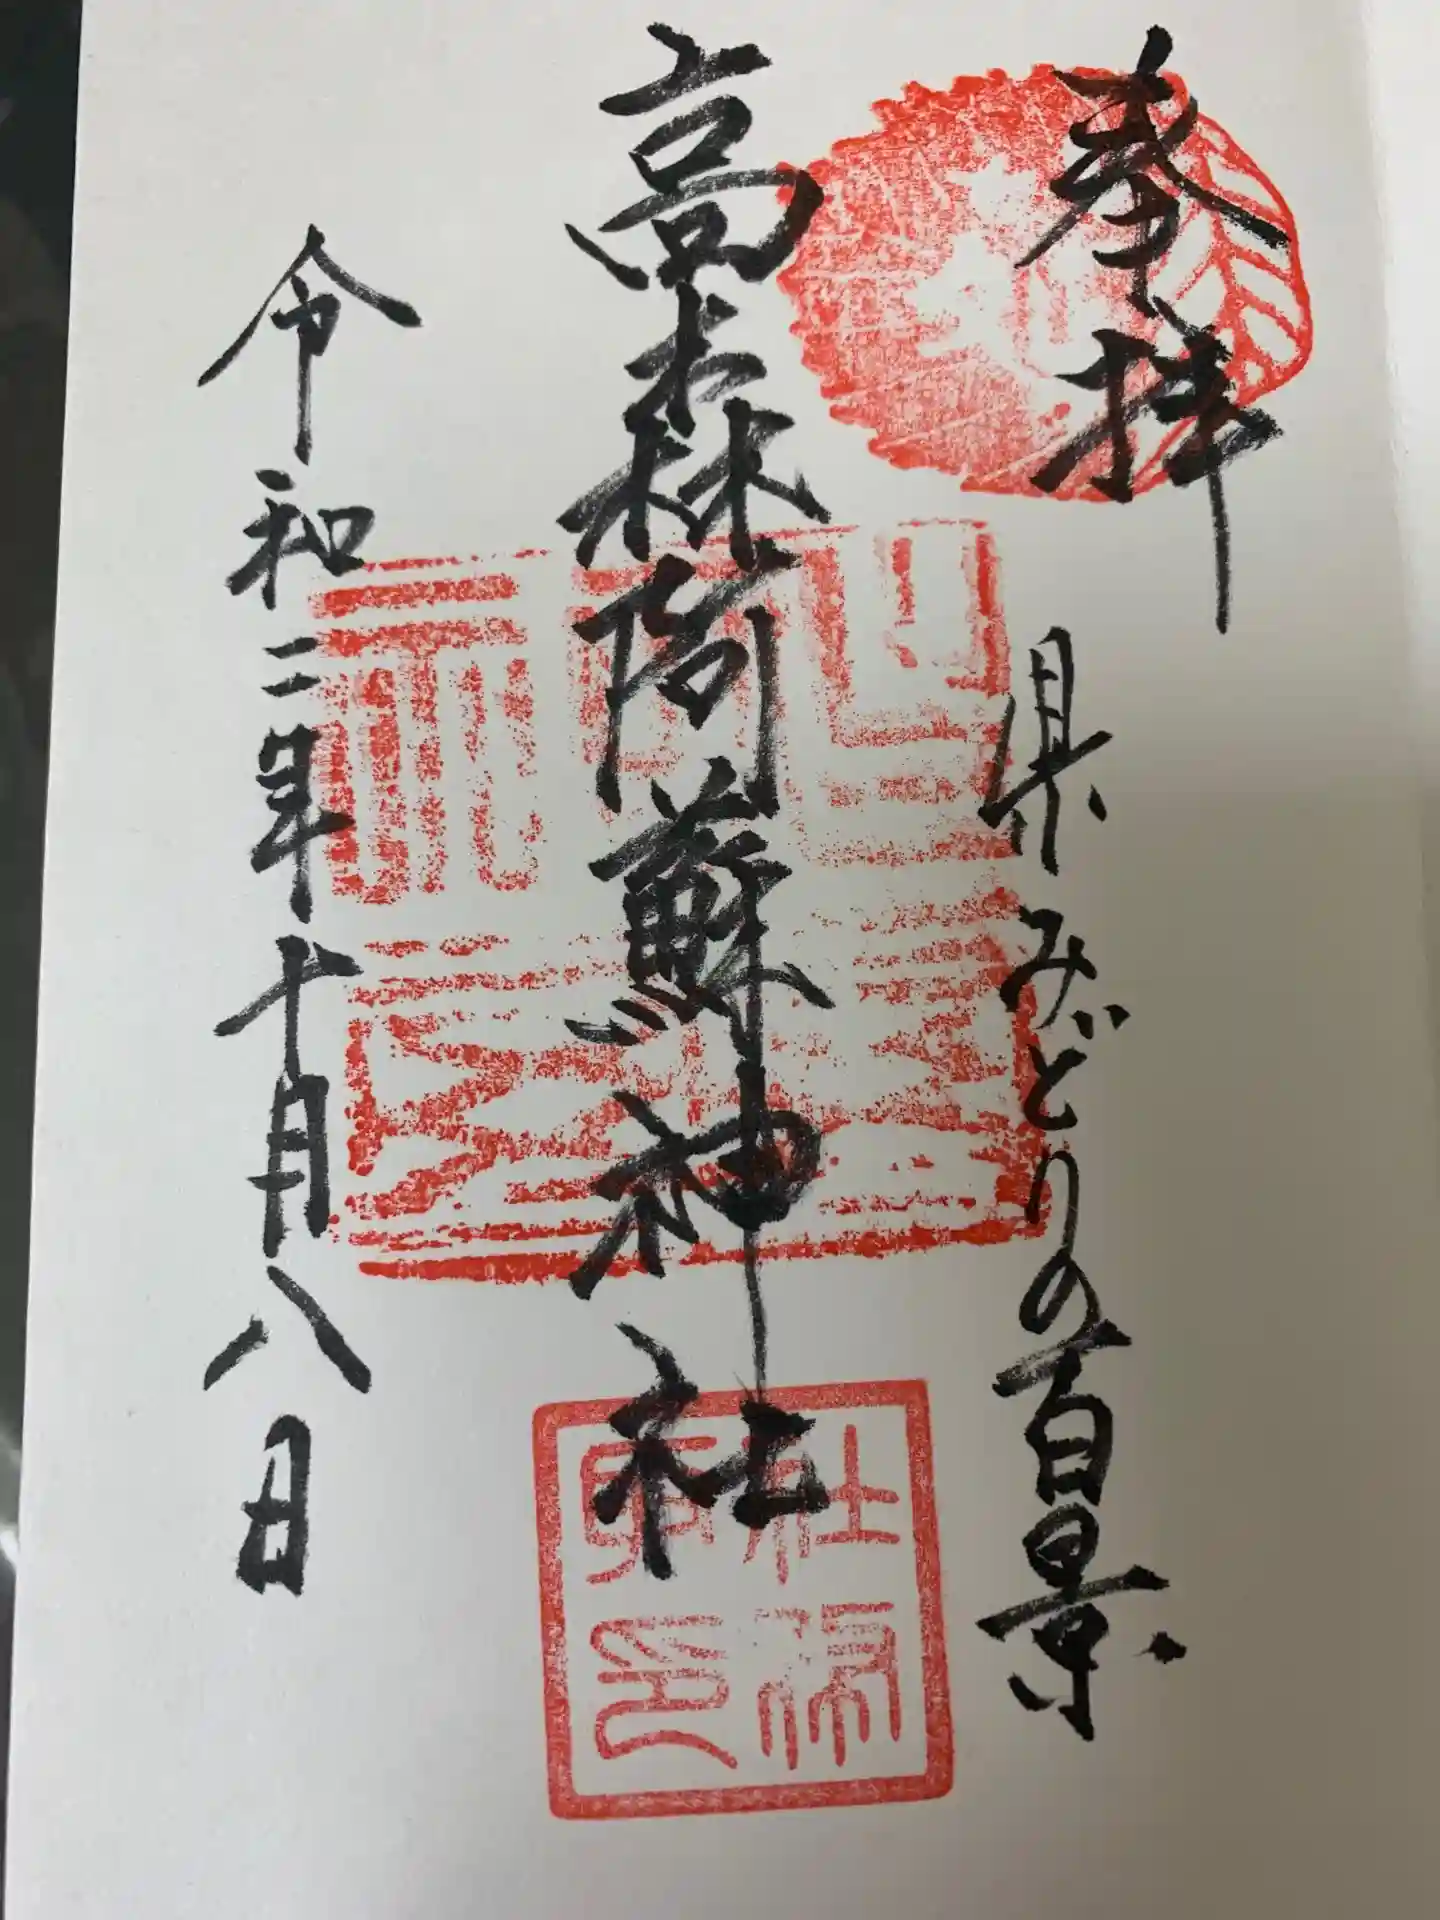 奉拝
県みどりの百景
高森阿蘇神社
令和二年十月八日